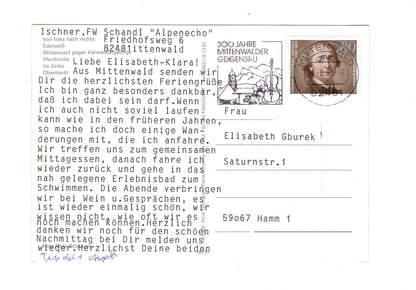 Ischner,FW Schandl "Alpenecho"
Von links nach rechts: Friedhofsweg 6
Edelweiß 82481 Mittenwald
Mittenwald gegen Karwendelgebirge
Pfarrkirche
Im Gries
Obermarkt
Liebe Elisabeth-Klara!
Aus Mittenwald senden wir
Dir die herzlichsten Feriengrüße
Ich bin ganz besonders dankbar,
daß ich dabei sein darf.Wenn
ich auch nicht soviel laufen
kann wie in den früheren Jahren,
so mache ich doch einige Wan
derungen mit, die ich anfahre.
Wir treffen uns zum gemeinsamen
Mittagessen, danach fahre ich
wieder zurück und gehe in das
nah gelegene Erlebnisbad zum
Schwimmen. Die Abende verbringen
wir bei Wein u.Gesprächen, es
ist wieder einmalig schön, wir
wissen nicht, wie oft wir es
noch machen können.Herzlich
danken wir noch für den schönen
Nachmittag bei Dir melden uns
wieder.Herzlichst Deine beiden
300 JAHRE
MITTENWALDER
GEIGENBAU
82481
80
Frau
Elisabeth Gburek
Saturnstr.1
59067 Hamm 1